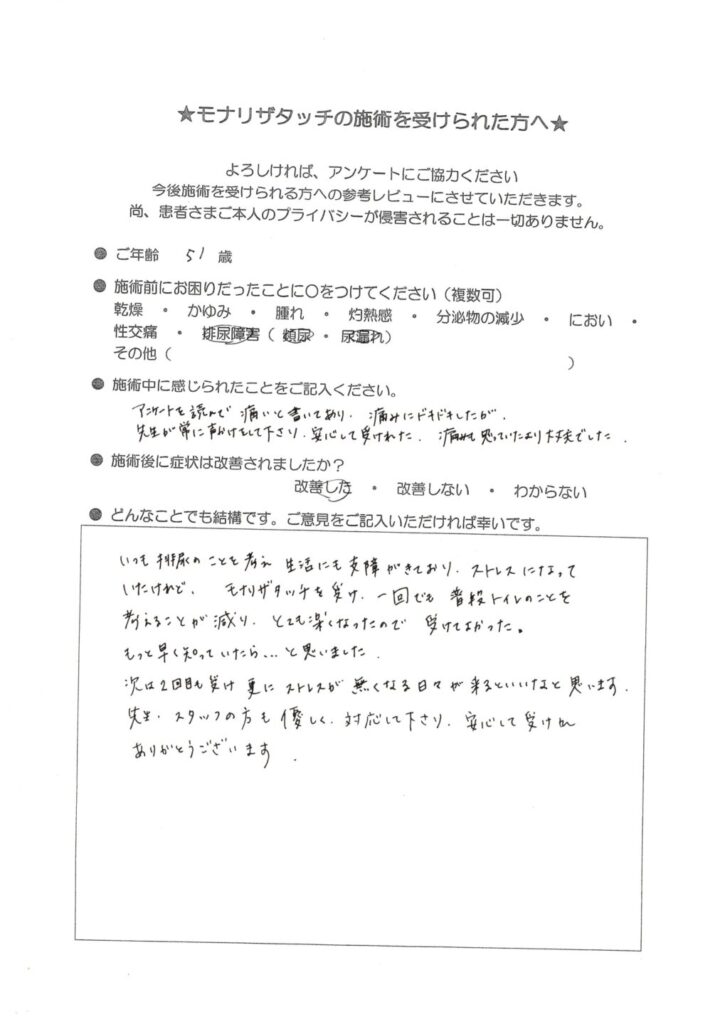 ★モナリザタッチの施術を受けられた方へ★
よろしければ、アンケートにご協力ください
今後施術を受けられる方への参考レビューにさせていただきます。
尚、患者さまご本人のプライバシーが侵害されることは一切ありません。
● ご年齢 51 歳
● 施術前にお困りだったことに○をつけてください（複数可）
乾燥 ・ かゆみ ・ 腫れ ・ 灼熱感 ・ 分泌物の減少 ・ におい ・
性交痛 ・ 排尿障害（ 頻尿 ・ 尿漏れ）
その他（ ）
● 施術中に感じられたことをご記入ください。
アンケートを読んで 痛いと書いてあり、痛みにドキドキしたが、
先生が常に声かけをして下さり、安心して受けれた。痛みも思っていたより大丈夫でした。
● 施術後に症状は改善されましたか？
改善した ・ 改善しない ・ わからない
● どんなことでも結構です。ご意見をご記入いただければ幸いです。
いつも排尿のことを考え 生活にも支障がきており、ストレスになって
いたけれど、モナリザタッチを受け、一回でも 普段トイレのことを
考えることが減り、とても楽くなったので 受けてよかった。
もっと早く知っていたら…と思いました。
次は2回目も受け 更に ストレスが 無くなる日々が来るといいなと思います。
先生、スタッフの方も 優しく、対応して下さり、安心して受けれ
ありがとうございます。